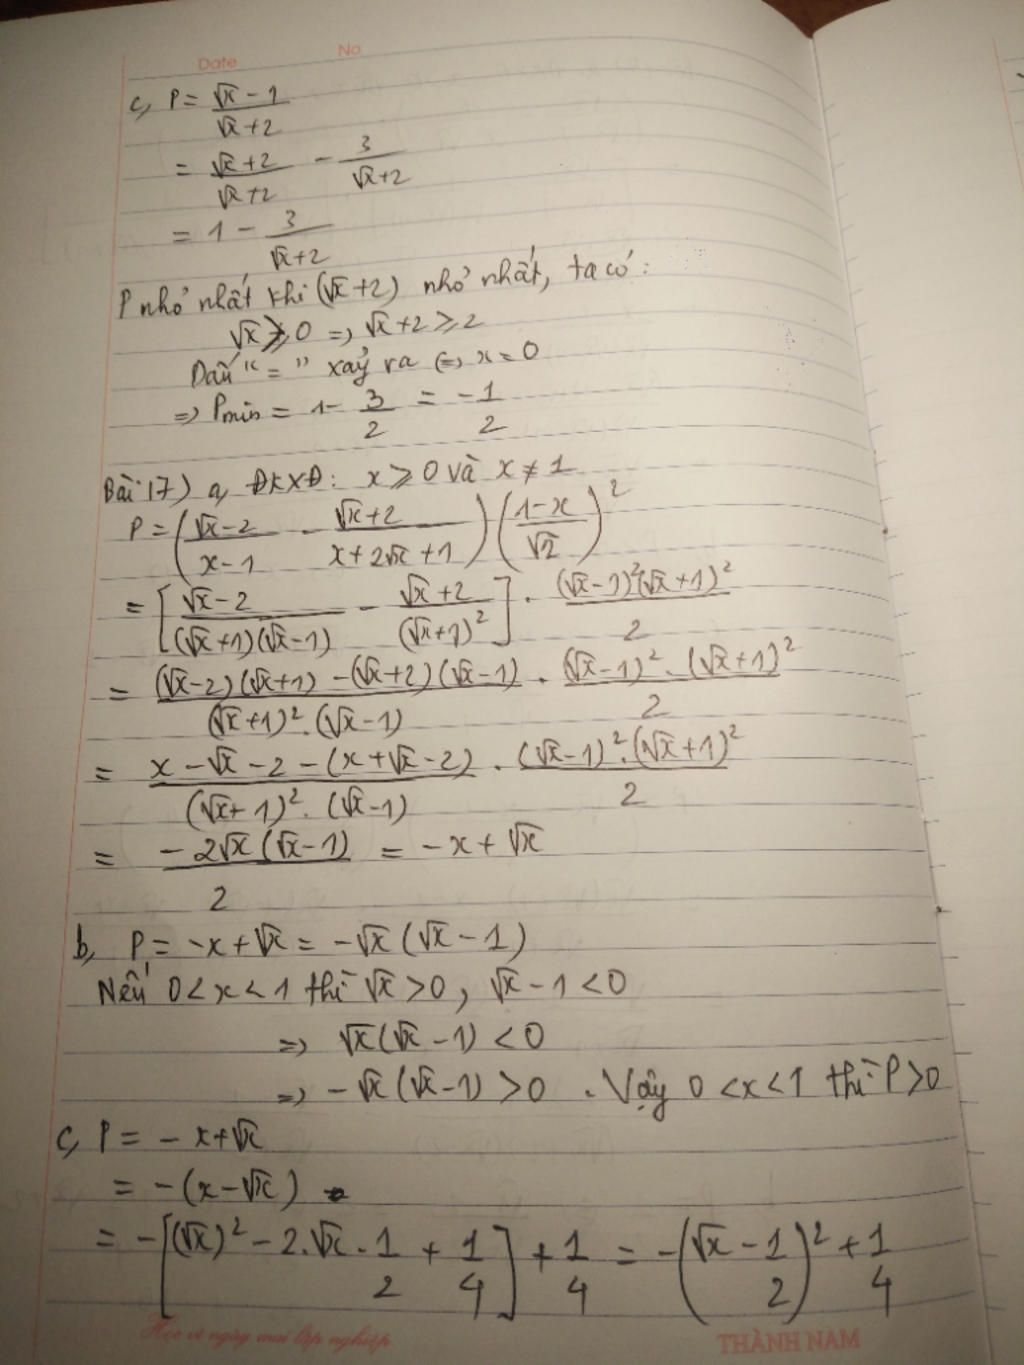 Date No
c, P = (√x - 1)/(√x + 2)
= (√x + 2)/(√x + 2) - 3/(√x + 2)
= 1 - 3/(√x + 2)
P nhỏ nhất khi (√x + 2) nhỏ nhất, ta có:
√x ≥ 0 => √x + 2 ≥ 2
Dấu "=" xảy ra <=> x = 0
=> Pmin = 1 - 3/2 = -1/2
Bài 17) a, ĐKXĐ: x ≥ 0 và x ≠ 1
P = ((√x - 2)/(x - 1) - (√x + 2)/(x + 2√x + 1)) ((1 - x)/√2)²
= [(√x - 2)/((√x + 1)(√x - 1)) - (√x + 2)/(√x + 1)²] . ((√x - 1)²(√x + 1)²)/2
= ((√x - 2)(√x + 1) - (√x + 2)(√x - 1))/((√x + 1)².(√x - 1)) . ((√x - 1)².(√x + 1)²)/2
= (x - √x - 2 - (x + √x - 2))/((√x + 1)².(√x - 1)) . ((√x - 1)².(√x + 1)²)/2
= (-2√x(√x - 1))/2 = -x + √x
b, P = -x + √x = -√x(√x - 1)
Nếu 0 < x < 1 thì √x > 0, √x - 1 < 0
=> √x(√x - 1) < 0
=> -√x(√x - 1) > 0 . Vậy 0 < x < 1 thì P > 0
c, P = -x + √x
= -(x - √x)
= -[(√x)² - 2.√x.1/2 + 1/4] + 1/4 = -(√x - 1/2)² + 1/4
Học vì ngày mai lập nghiệp THÀNH NAM